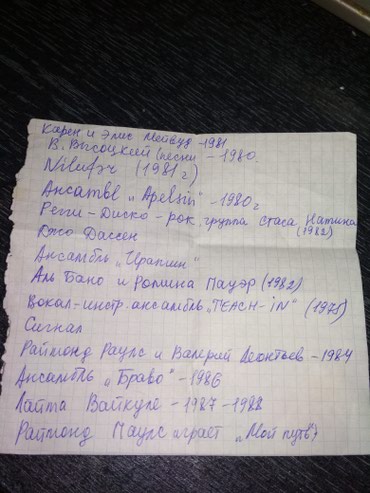 Карен и Элис Мейвуд - 1981
В. Высоцкий (песни - 1980.
Nilufər (1981 г)
Ансамбль „Apelsin" - 1980 г
Регги-Диско-рок, группа Стаса Намина
(1982)
Джо Дассен
Ансамбль „
Аль Бано и Ромина Пауэр (1982)
Вокал-инстр. ансамбль „TEACH-iN" (1975)
Сигнал
Раймонд Паулс и Валерий Леонтьев - 1984
Ансамбль „Браво" - 1986
Лайма Вайкуле - 1987-1988
Раймонд Паулс играет „Мой путь")